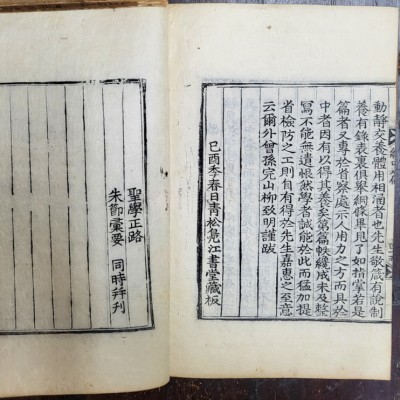 動靜交養體用相涵者也先生敬箴有說制
養有錄表裏俱舉綱條畢見了如指掌若是
篇者又專於省察處示人用力之方而具於
中者因有以得其養矣第篇帙纔成未及整
寫不能無遺悵然學者誠能於此而猛加提
省檢防之工則自有得於先生嘉惠之至意
云爾外曾孫完山柳致明謹跋
己酉季春日靑松鳧江書堂藏板
聖學正路
朱節彙要 同時幷刊